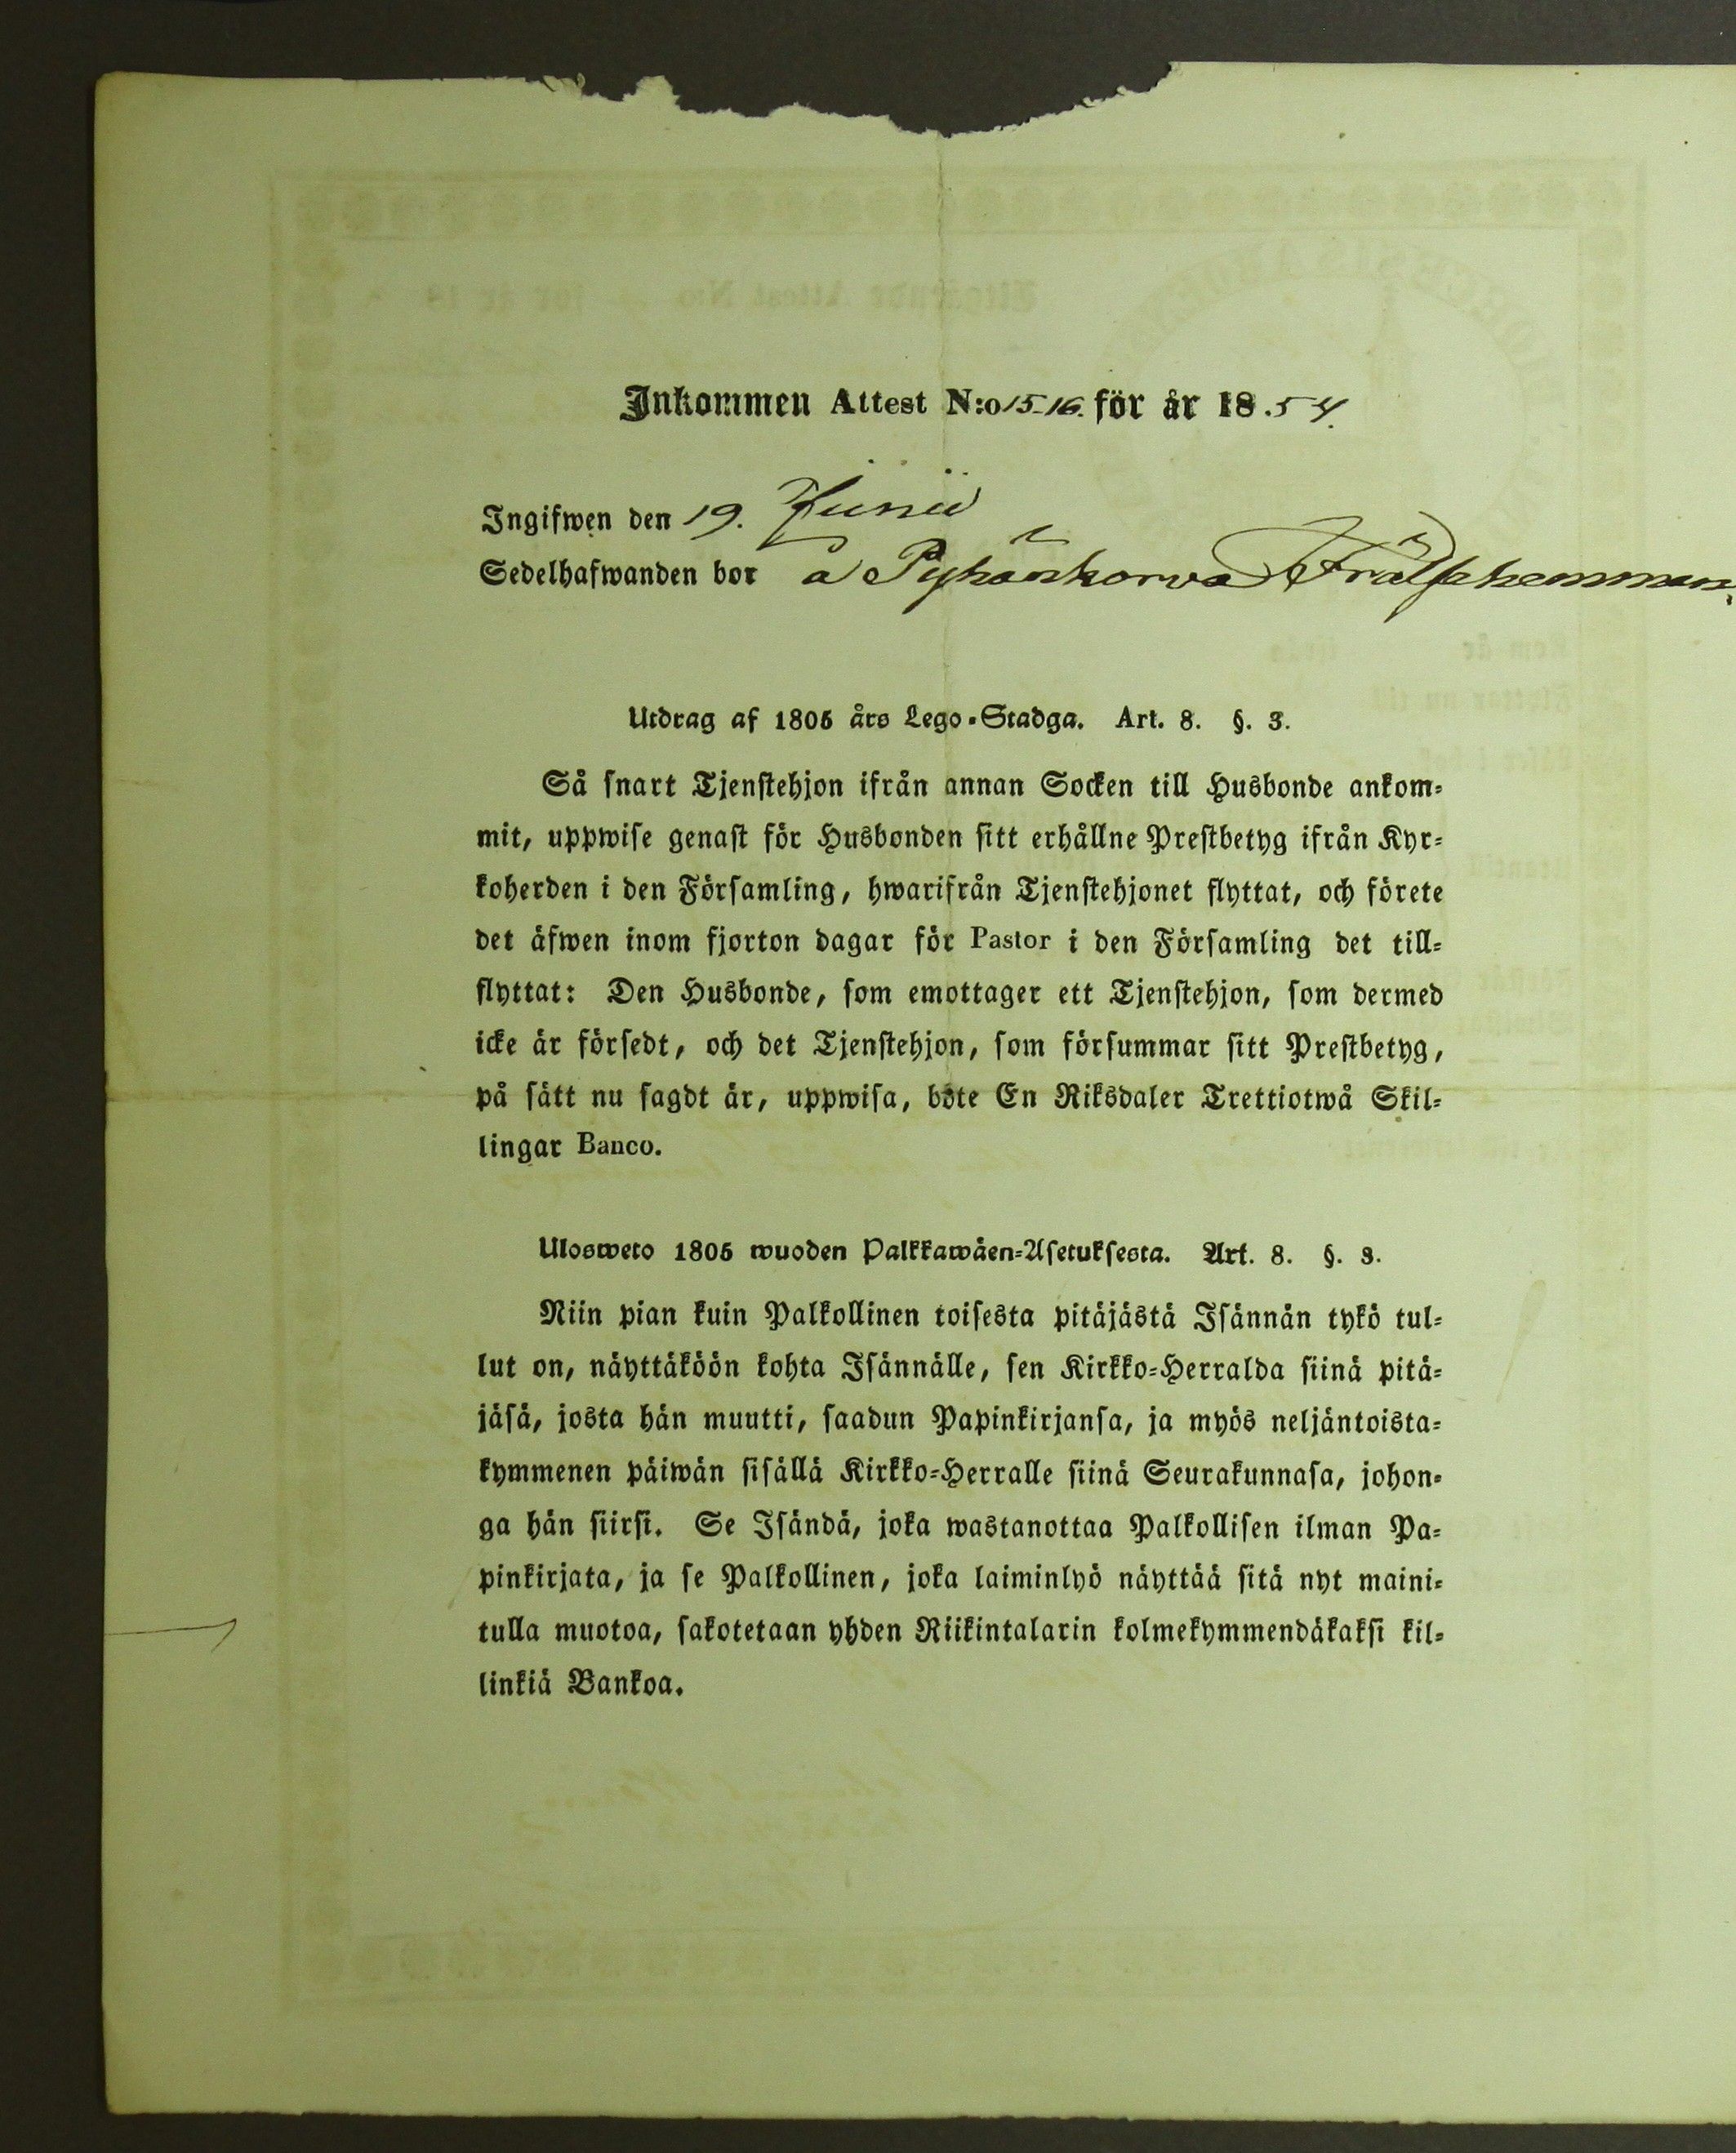 Inkommen Attest N:o 15-16. för år 1854.
Ingifwen den 19. Junii
Sedelhafwanden bor å Pyhänkorva Frälsehemman.
Utdrag af 1805 års Lego-Stadga. Art. 8. §. 3.
Så snart Tjenstehjon ifrån annan Socken till Husbonde ankom-
mit, uppwise genast för Husbonden sitt erhållne Prestbetyg ifrån Kyr-
koherden i den Församling, hwarifrån Tjenstehjonet flyttat, och förete
det äfwen inom fjorton dagar för Pastor i den Församling det till-
flyttat: Den Husbonde, som emottager ett Tjenstehjon, som dermed
icke är försedt, och det Tjenstehjon, som försummar sitt Prestbetyg,
på sätt nu sagdt är, uppwisa, böte En Riksdaler Trettiotwå Skil-
lingar Banco.
Ulosweto 1805 wuoden Palkkawäen-Asetuksesta. Art. 8. §. 3.
Niin pian kuin Palkollinen toisesta pitäjästä Isännän tykö tul-
lut on, näyttäköön kohta Isännälle, sen Kirkko-Herralda siinä pitä-
jäsä, josta hän muutti, saadun Papinkirjansa, ja myös neljäntoista-
kymmenen päiwän sisällä Kirkko-Herralle siinä Seurakunnasa, johon-
ga hän siirsi. Se Isändä, joka wastanottaa Palkollisen ilman Pa-
pinkirjata, ja se Palkollinen, joka laiminlyö näyttää sitä nyt maini-
tulla muotoa, sakotetaan yhden Riikintalarin kolmekymmendäkaksi kil-
linkiä Bankoa.